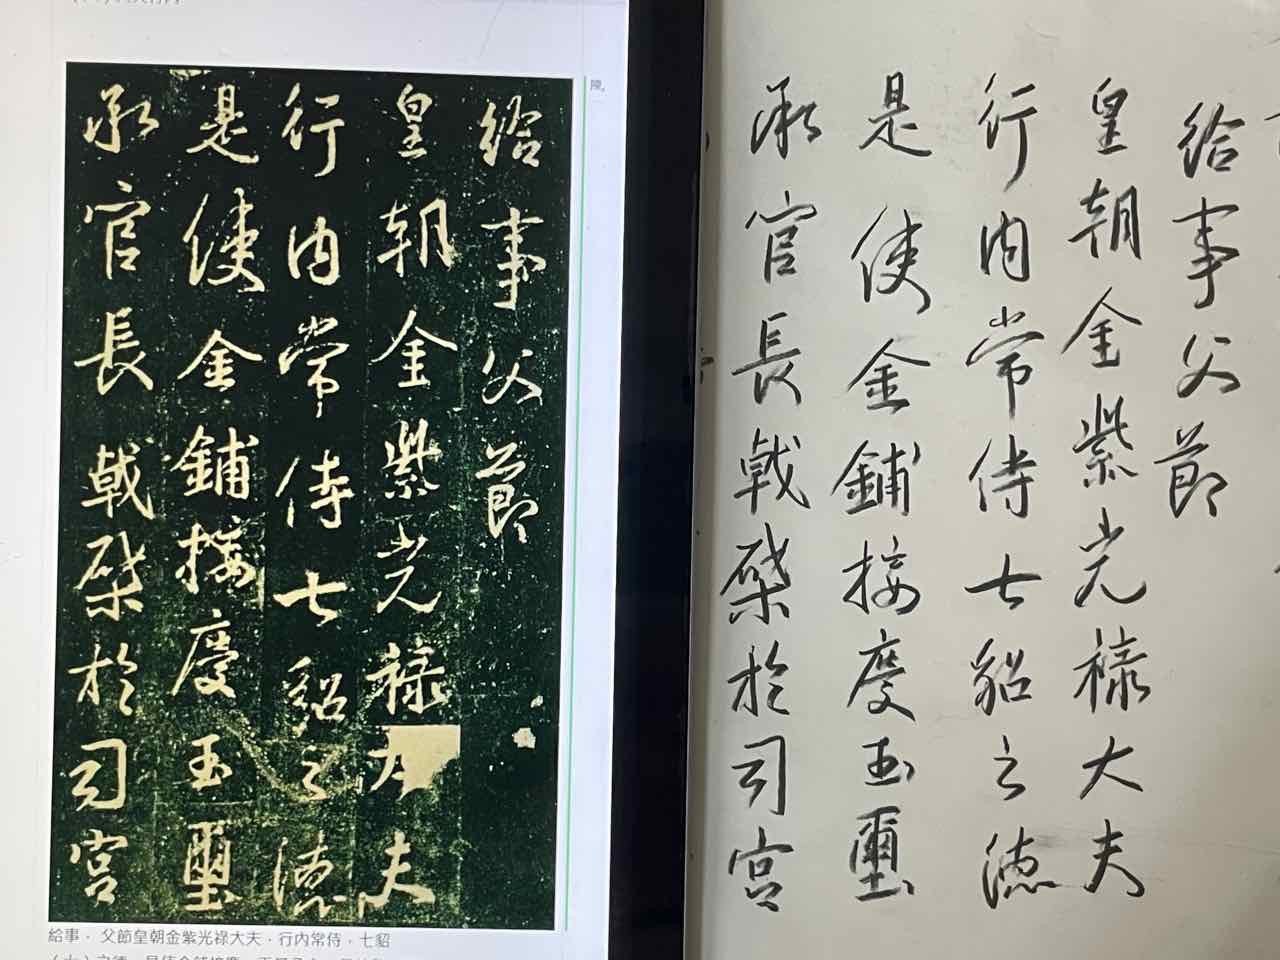 給事父節
皇朝金紫光祿大夫
行內常侍七貂之德
是使金鋪接慶玉璽
承官長戟棨於司宮
陳。
給事．父節皇朝金紫光祿大夫．行內常侍．七貂
給事父節
皇朝金紫光祿大夫
行內常侍七貂之德
是使金鋪接慶玉璽
承官長戟棨於司宮